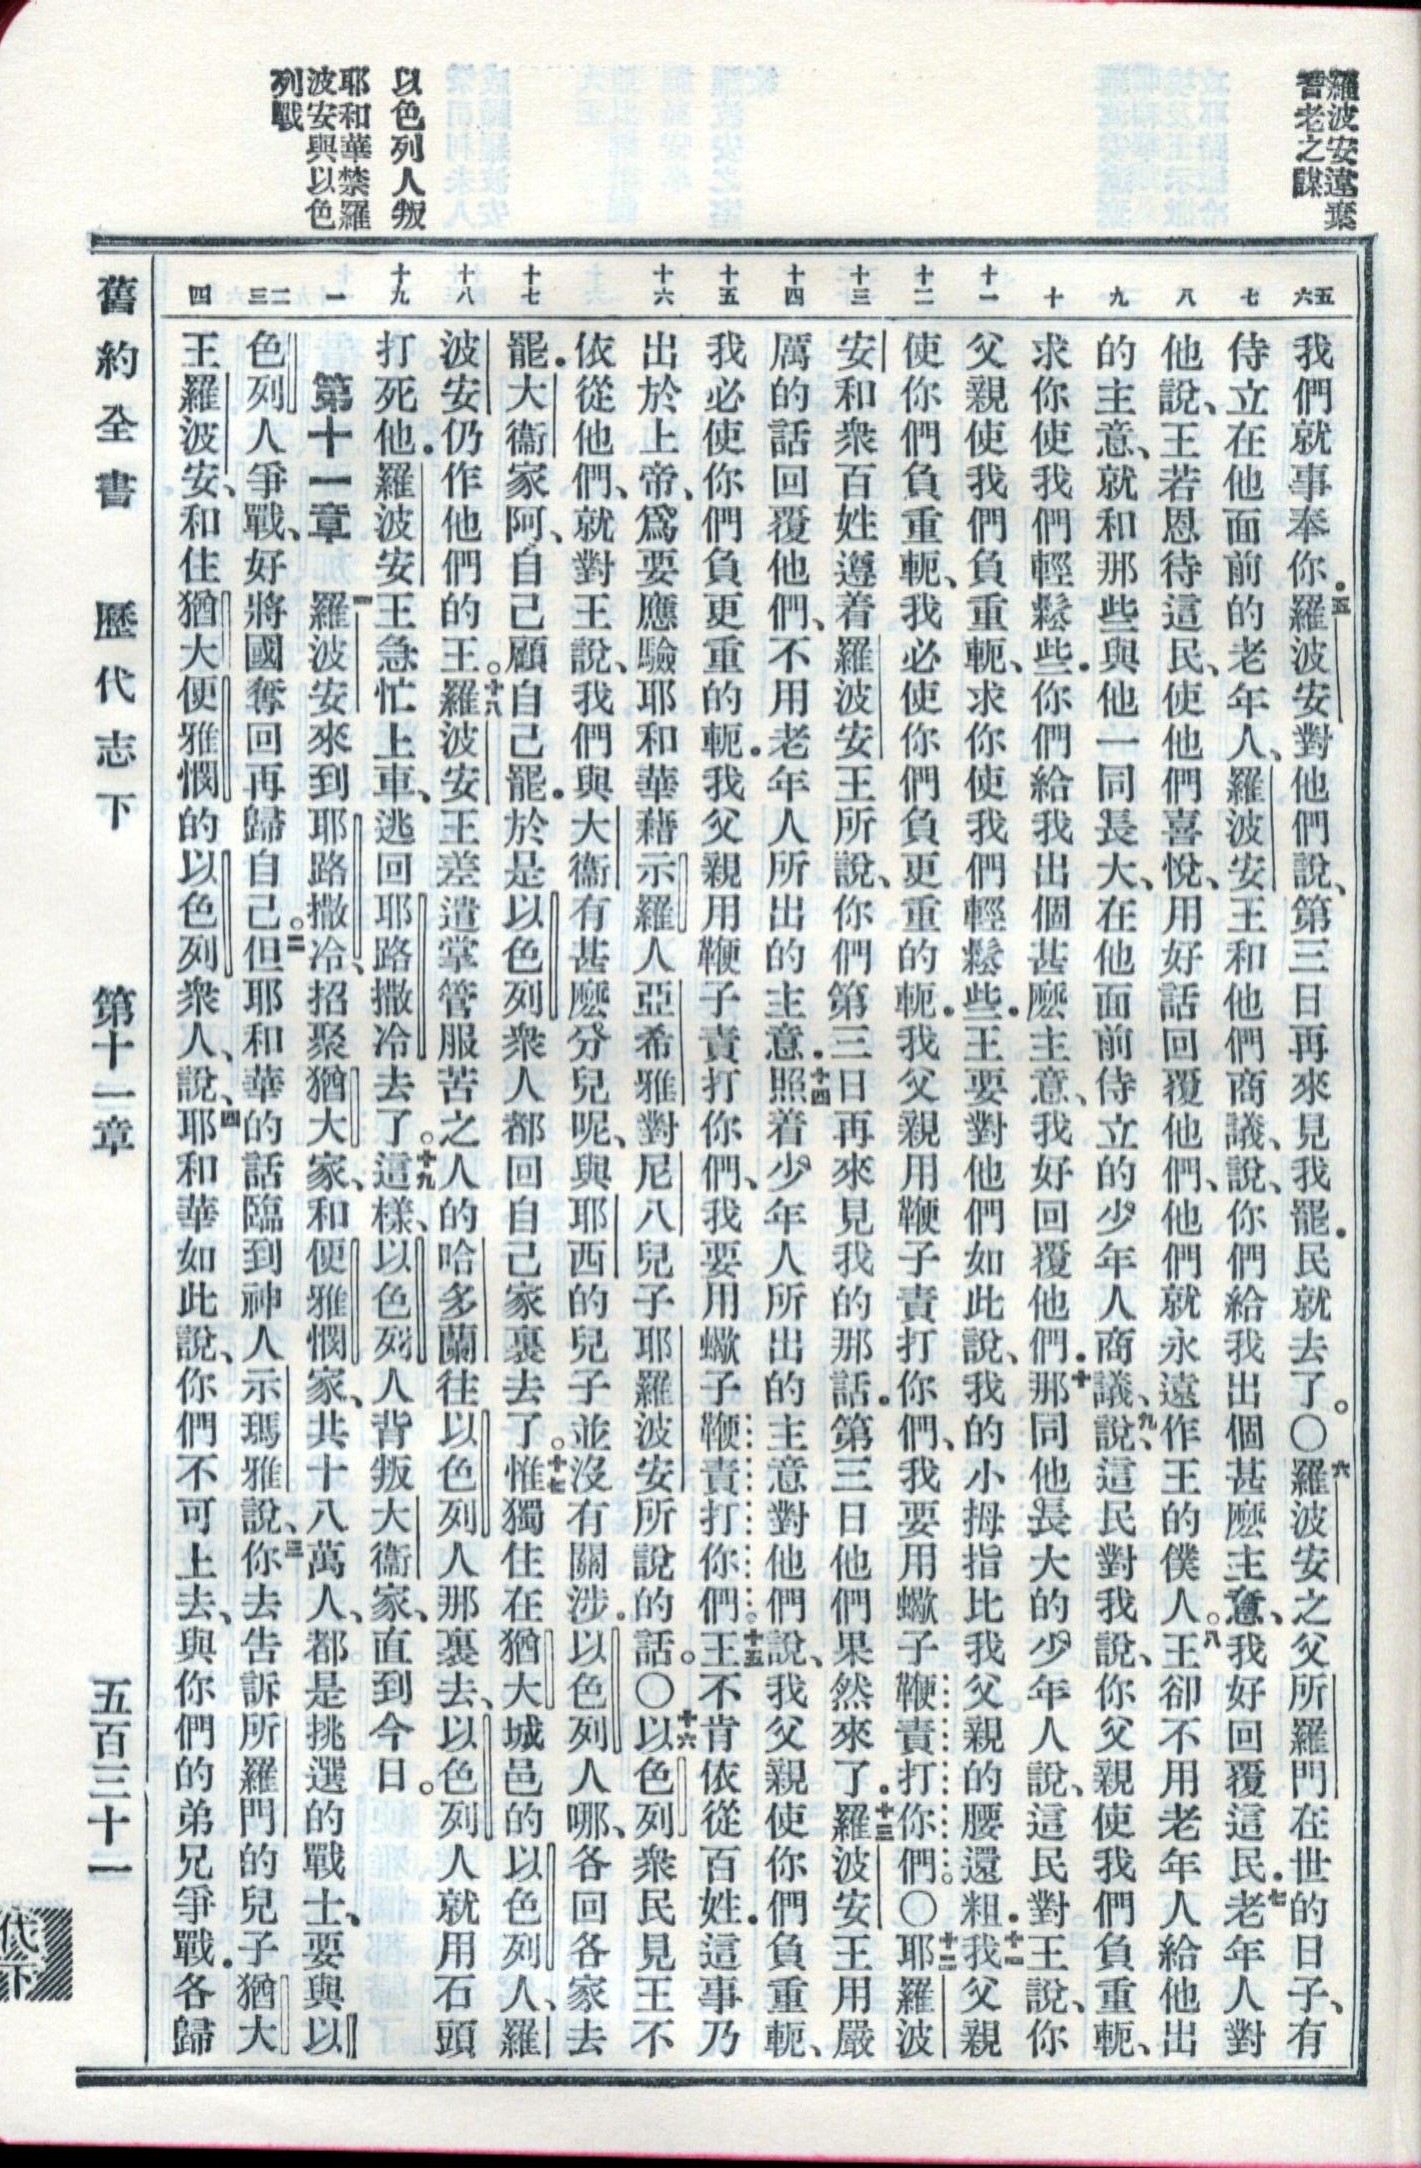 羅波安違棄
耆老之謀
以色列人叛
耶和華禁羅
波安與以色
列戰
五 六 七 八 九 十 十一 十二 十三 十四 十五 十六 十七 十八 十九 一 二 三 四
我們就事奉你.五羅波安對他們說、第三日再來見我罷.民就去了。〇六羅波安之父所羅門在世的日子、有
侍立在他面前的老年人、羅波安王和他們商議、說、你們給我出個甚麽主意、我好回覆這民.七老年人對
他說、王若恩待這民、使他們喜悅、用好話回覆他們、他們就永遠作王的僕人。八王卻不用老年人給他出
的主意、就和那些與他一同長大、在他面前侍立的少年人商議、九說、這民對我說、你父親使我們負重軛、
求你使我們輕鬆些.你們給我出個甚麽主意、我好回覆他們.十那同他長大的少年人說、這民對王說、你
父親使我們負重軛、求你使我們輕鬆些.王要對他們如此說、我的小拇指比我父親的腰還粗.十一我父親
使你們負重軛、我必使你們負更重的軛.我父親用鞭子責打你們、我要用蠍子鞭責打你們。〇十二耶羅波
安和衆百姓遵着羅波安王所說、你們第三日再來見我的那話.第三日他們果然來了.十三羅波安王用嚴
厲的話回覆他們、不用老年人所出的主意.十四照着少年人所出的主意對他們說、我父親使你們負重軛、
我必使你們負更重的軛.我父親用鞭子責打你們、我要用蠍子鞭責打你們。十五王不肯依從百姓.這事乃
出於上帝、爲要應驗耶和華藉示羅人亞希雅對尼八兒子耶羅波安所說的話。〇十六以色列衆民見王不
依從他們、就對王說、我們與大衞有甚麽分兒呢、與耶西的兒子並沒有關涉.以色列人哪、各回各家去
罷.大衞家阿、自己顧自己罷.於是以色列衆人都回自己家裏去了。十七惟獨住在猶大城邑的以色列人、羅
波安仍作他們的王。十八羅波安王差遣掌管服苦之人的哈多蘭往以色列人那裏去、以色列人就用石頭
打死他.羅波安王急忙上車、逃回耶路撒冷去了。十九這樣、以色列人背叛大衞家、直到今日。
第十一章 一羅波安來到耶路撒冷、招聚猶大家、和便雅憫家、共十八萬人、都是挑選的戰士、要與以
色列人爭戰、好將國奪回再歸自己。二但耶和華的話臨到神人示瑪雅說、三你去告訴所羅門的兒子猶大
王羅波安、和住猶大便雅憫的以色列衆人、說、四耶和華如此說、你們不可上去、與你們的弟兄爭戰.各歸
舊約全書 歷代志下 第十一章 五百三十一
代下